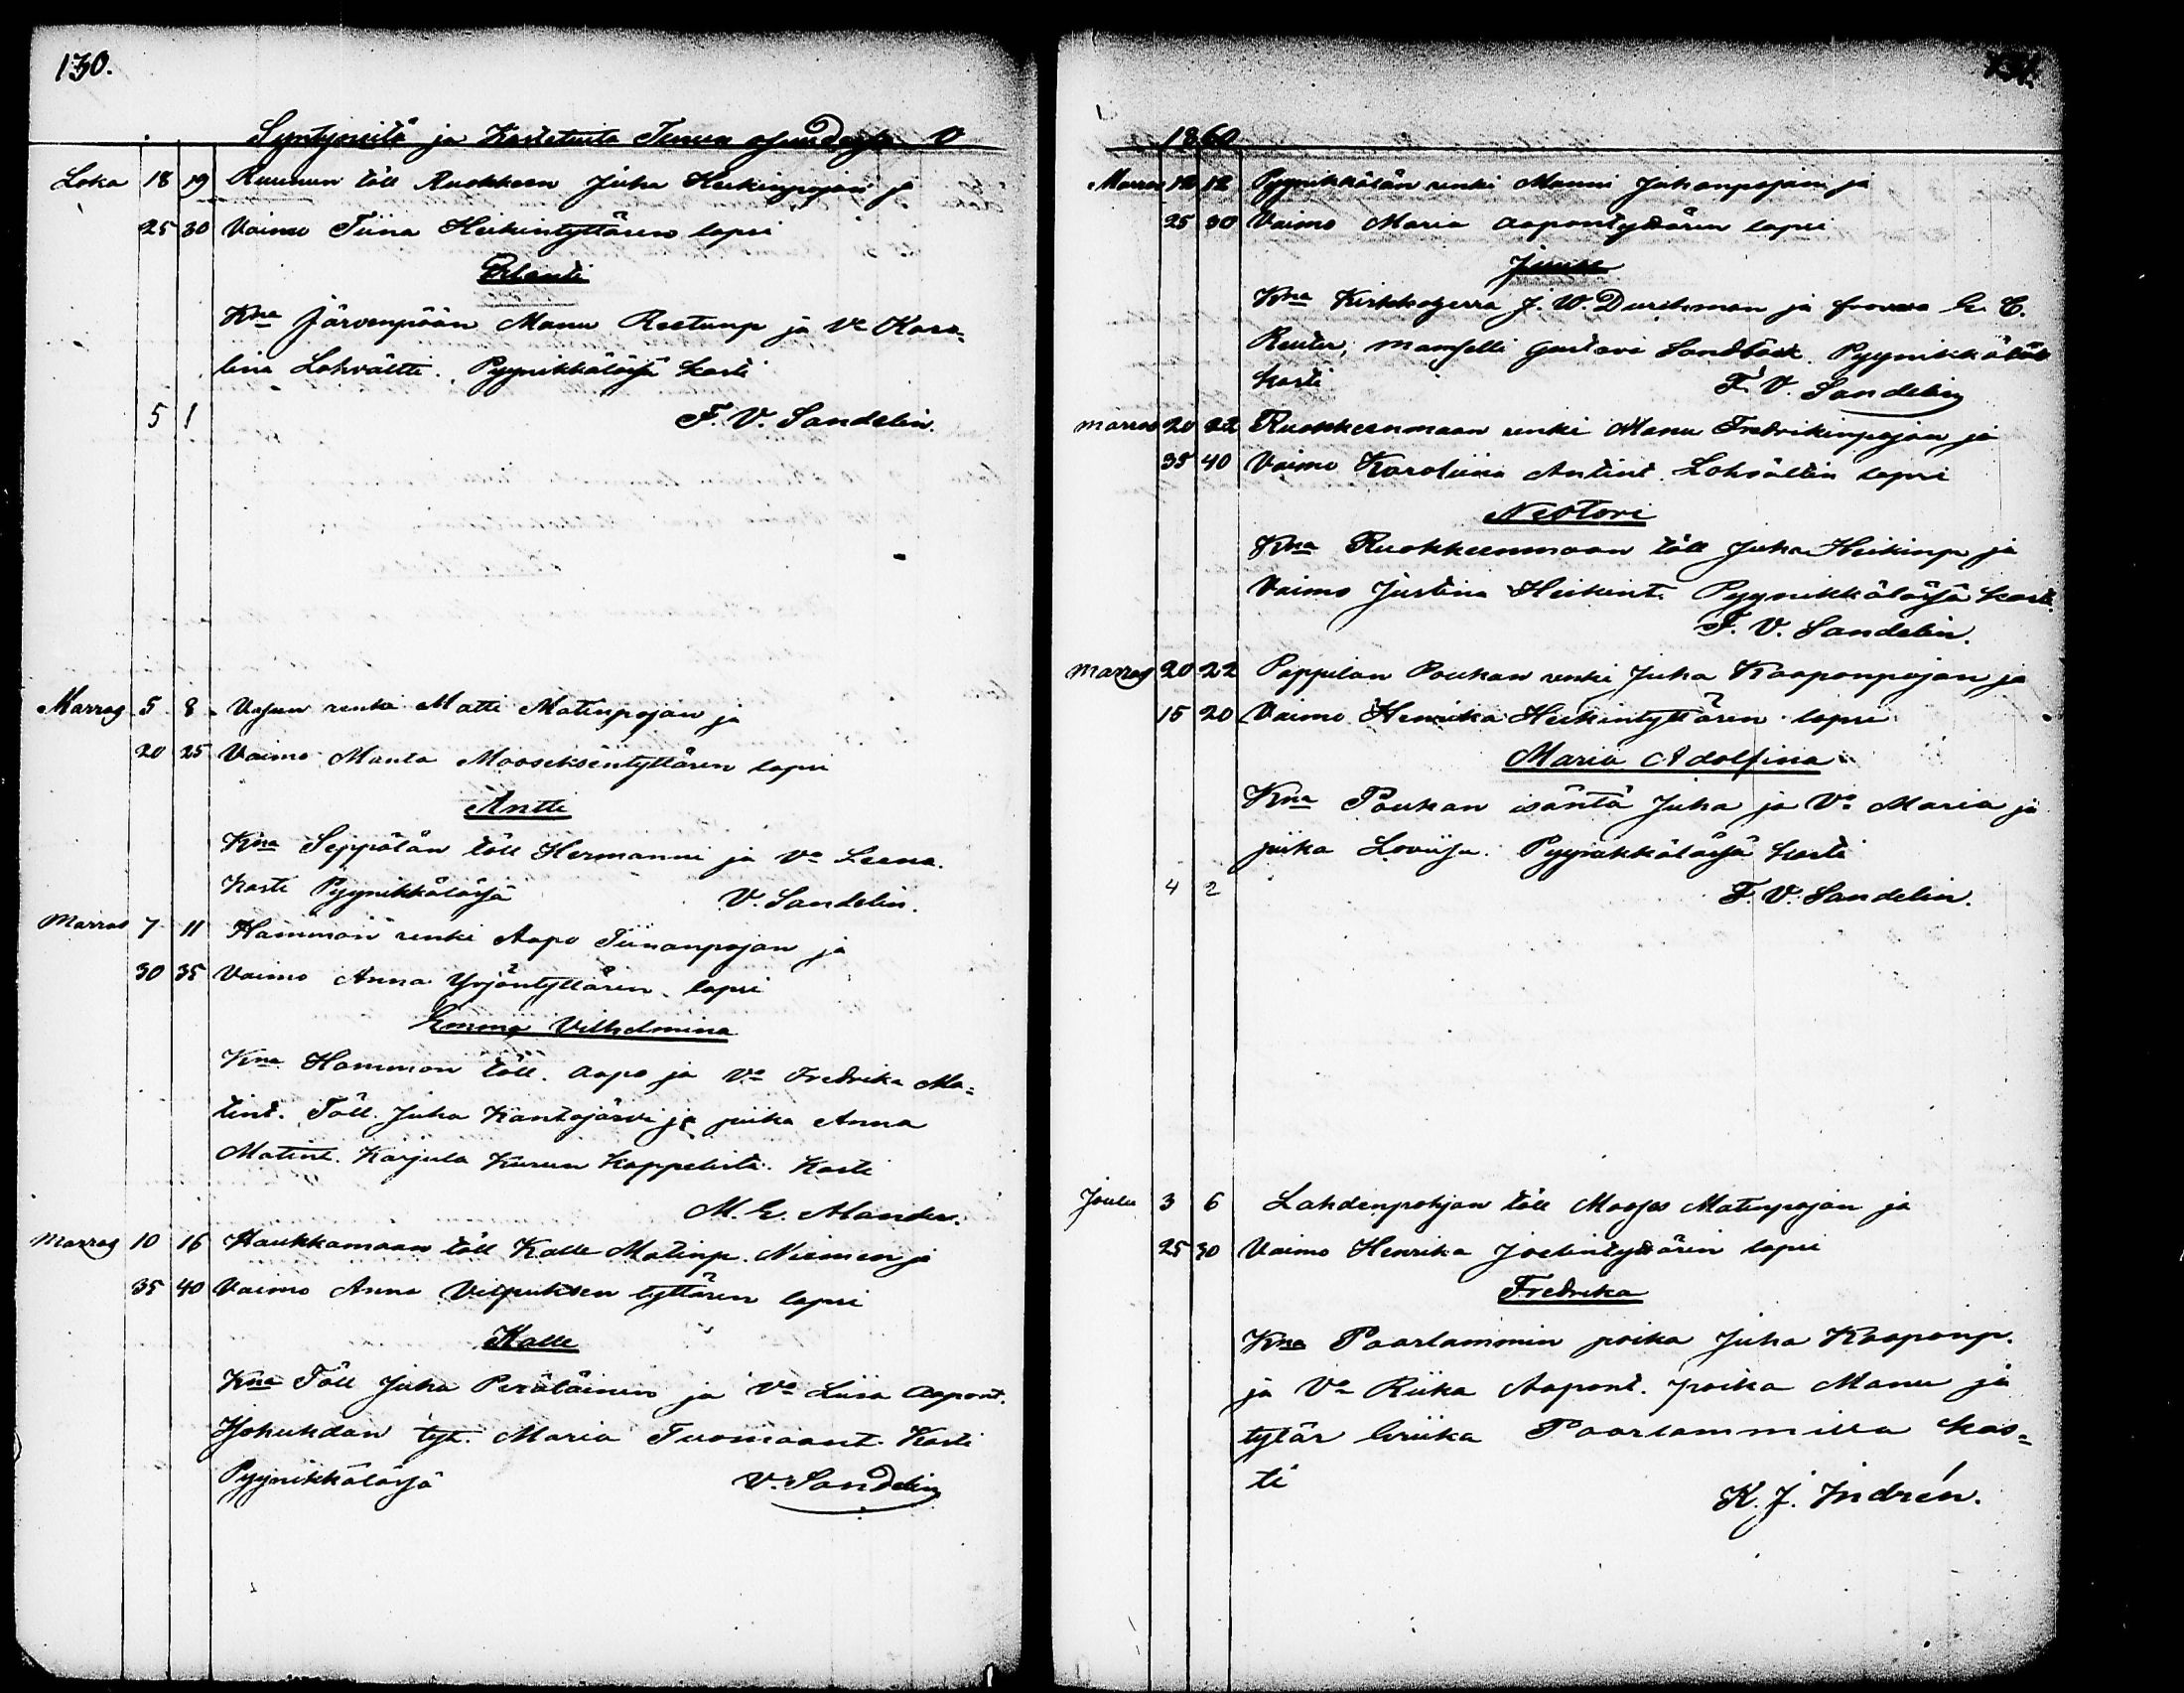 130.
Syntyneitä ja Kastetuita Teuron V
Loka 18 19 Ruunun töll Ruokkeen Juha Heikinpojan ja
25 30 Vaimo Tiina Heikintyttären lapsi
Erlanti
Kna Järvenpään Manu Reetunp ja Vo Karo=
lina Lohvältti. Pyynikkälässä kasti
5 1 F. V. Sandelin.
Marras 5 8 renki Matti Matinpojan ja
20 25 Vaimo Manta Mooseksentyttären lapsi
Antti
Kna Seppälän töll Hermanni ja Vo Leena.
Kasti Pyynikkälässä V. Sandelin.
Marras 7 11 Hämmön renki Aapo Tiinanpojan ja
30 35 Vaimo Anna Yrjöntyttären lapsi
Emma Vilhelmina
Kna Hammon töll. Aapo ja Vo Fredrika Ma=
tint. Töll. Juha Kantojärvi ja piika Anna
Matint. Karjula Kurun Kappelista. Kasti
M. E. Alander.
Marras 10 16 Haukkamaan töll Kalle Matinp. Niemen ja
35 40 Vaimo Anna Vilpuksen tyttären lapsi
Kalle
Kna Töll Juha Peräläinen ja Vo Liisa Aapont.
tyt. Maria Tuomaant. Kasti
Pyynikkälässä V. Sandelin
131.
1860
Marras 12 12 Pyynikkälän renki Manni Juhanpojan ja
25 30 Vaimo Maria Aapontyttären lapsi
Kna Kirkkoherra J. W. Durchman ja frouva E. C.
Reuter, mamselli Gustava Sandbäck. Pyynikkäläs
kasti F. V. Sandelin
Marras 20 22 Ruokkeenmaan renki Manu Fredrikinpojan ja
35 40 Vaimo Karoliina Antint. Lohvältin lapsi
Nestori
Kna Ruokkeenmaan töll Juha Heikinp ja
Vaimo Justina Heikint. Pyynikkälässä kasti
F. V. Sandelin.
Marras 20 22 Pappilan Poukan renki Juha Kaaponpojan ja
15 20 Vaimo Henrika Heikintyttären lapsi
Maria Adolfina
Kna Poukan isäntä Juha ja Vo Maria ja
piika Loviisa. Pyynikkälässä kasti
4 2 F. V. Sandelin.
Joulu 3 6 Lahdenpohjan töll Mooses Matinpojan ja
25 30 Vaimo Henrika Joelintyttären lapsi
Fredrika
Kna Paarlammin poika Juha Kaaponp.
ja Vo Riika Aapont. poika Manu ja
tytär Uriika Paarlammilla kas=
ti
K. J. Indrén.